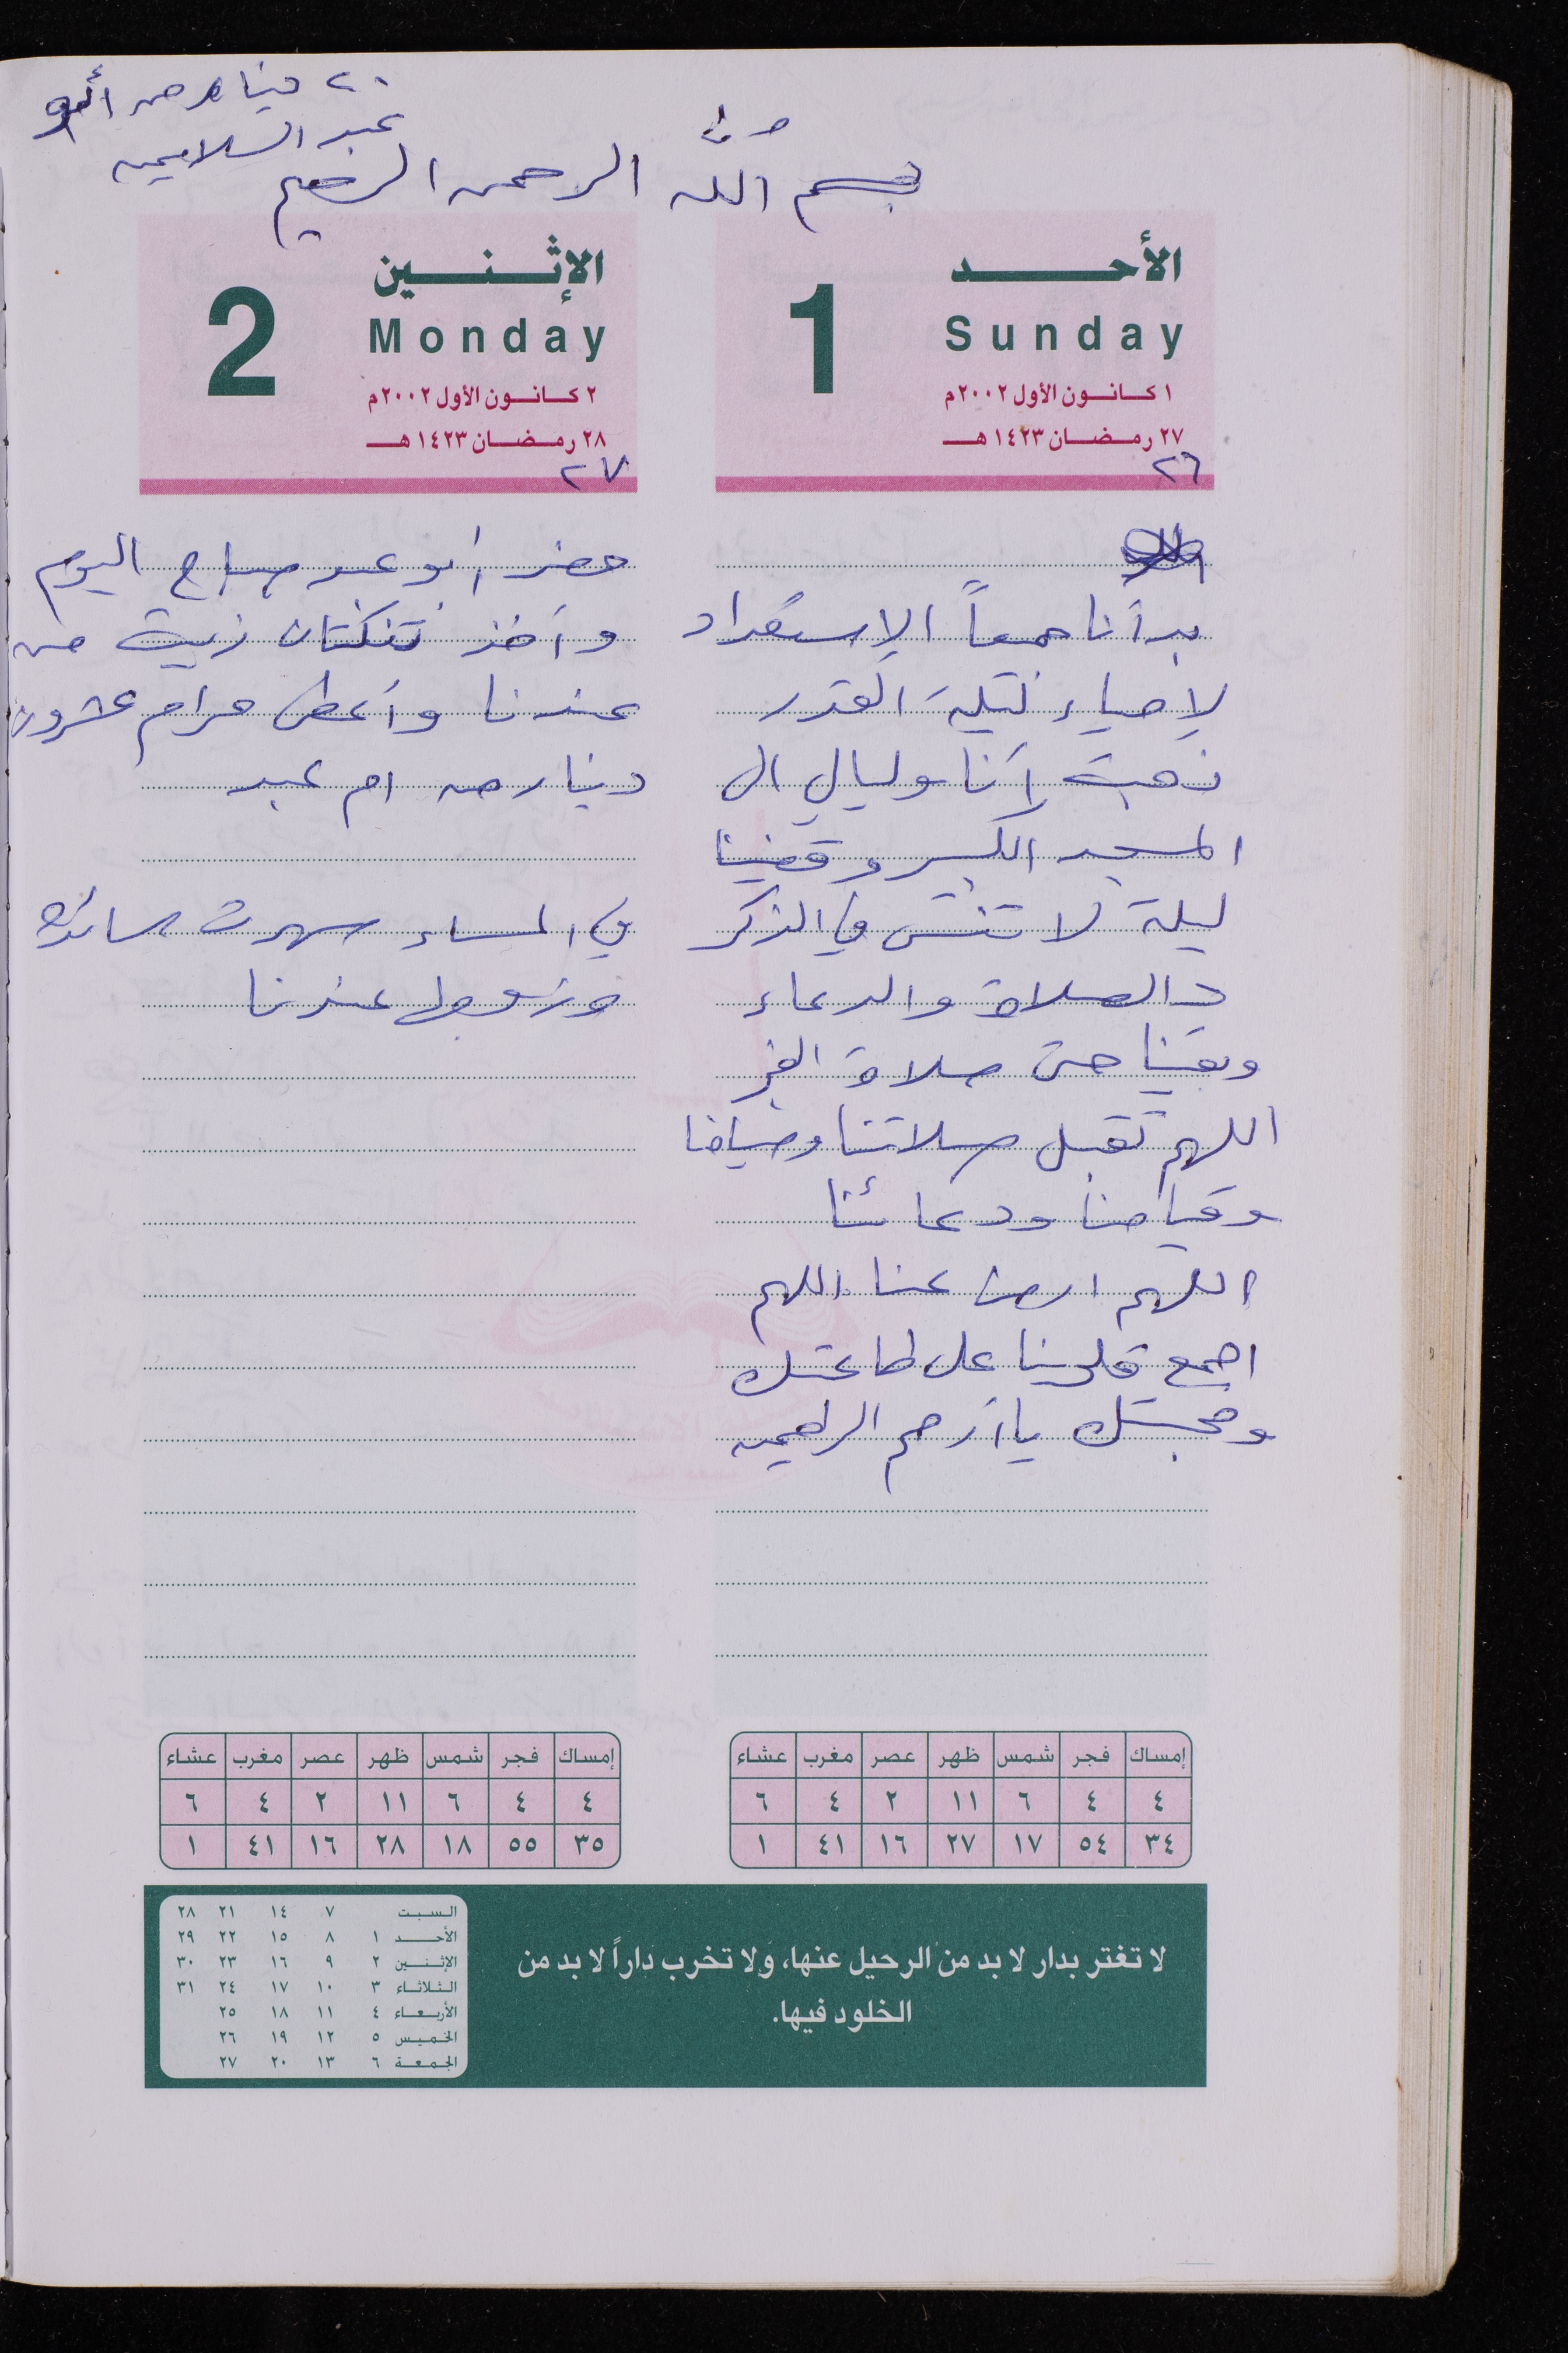 ٢٠ دينار من أبو
عبد السلايمه
بسم الله الرحمن الرحيم
الأحد
Sunday
1
١ كانون الأول ٢٠٠٢م
٢٧ رمضان ١٤٢٣هـ
٢٦
بدأنا جميعاً الإستعداد
لإحياء ليلة القدر
ذهبت أنا وليالي الى
المسجد الكبير وقضينا
ليلة لا تنسى في الذكر
والصلاة والدعاء
وبقينا حتى صلاة الفجر
اللهم تقبل صلاتنا وصيامنا
وقيامنا ودعائنا
اللهم ارض عنا اللهم
اجمع قلوبنا على طاعتك
ومحبتك يا أرحم الراحمين
الإثنين
Monday
2
٢ كانون الأول ٢٠٠٢م
٢٨ رمضان ١٤٢٣هـ
٢٧
حضر أبو عبد صباح اليوم
وأخذ تنكتان زيت من
عندنا وأعطى مرام عشرون
دينار من ام عبد
في المساء سهرت سائدة
وزوجها عندنا
إمساك فجر شمس ظهر عصر مغرب عشاء
٤ ٤ ٦ ١١ ٢ ٤ ٦
٣٤ ٥٤ ١٧ ٢٧ ١٦ ٤١ ١
إمساك فجر شمس ظهر عصر مغرب عشاء
٤ ٤ ٦ ١١ ٢ ٤ ٦
٣٥ ٥٥ ١٨ ٢٨ ١٦ ٤١ ١
لا تغتر بدار لا بد من الرحيل عنها، ولا تخرب داراً لا بد من
الخلود فيها.
السبت ٧ ١٤ ٢١ ٢٨
الأحد ١ ٨ ١٥ ٢٢ ٢٩
الإثنين ٢ ٩ ١٦ ٢٣ ٣٠
الثلاثاء ٣ ١٠ ١٧ ٢٤ ٣١
الأربعاء ٤ ١١ ١٨ ٢٥
الخميس ٥ ١٢ ١٩ ٢٦
الجمعة ٦ ١٣ ٢٠ ٢٧